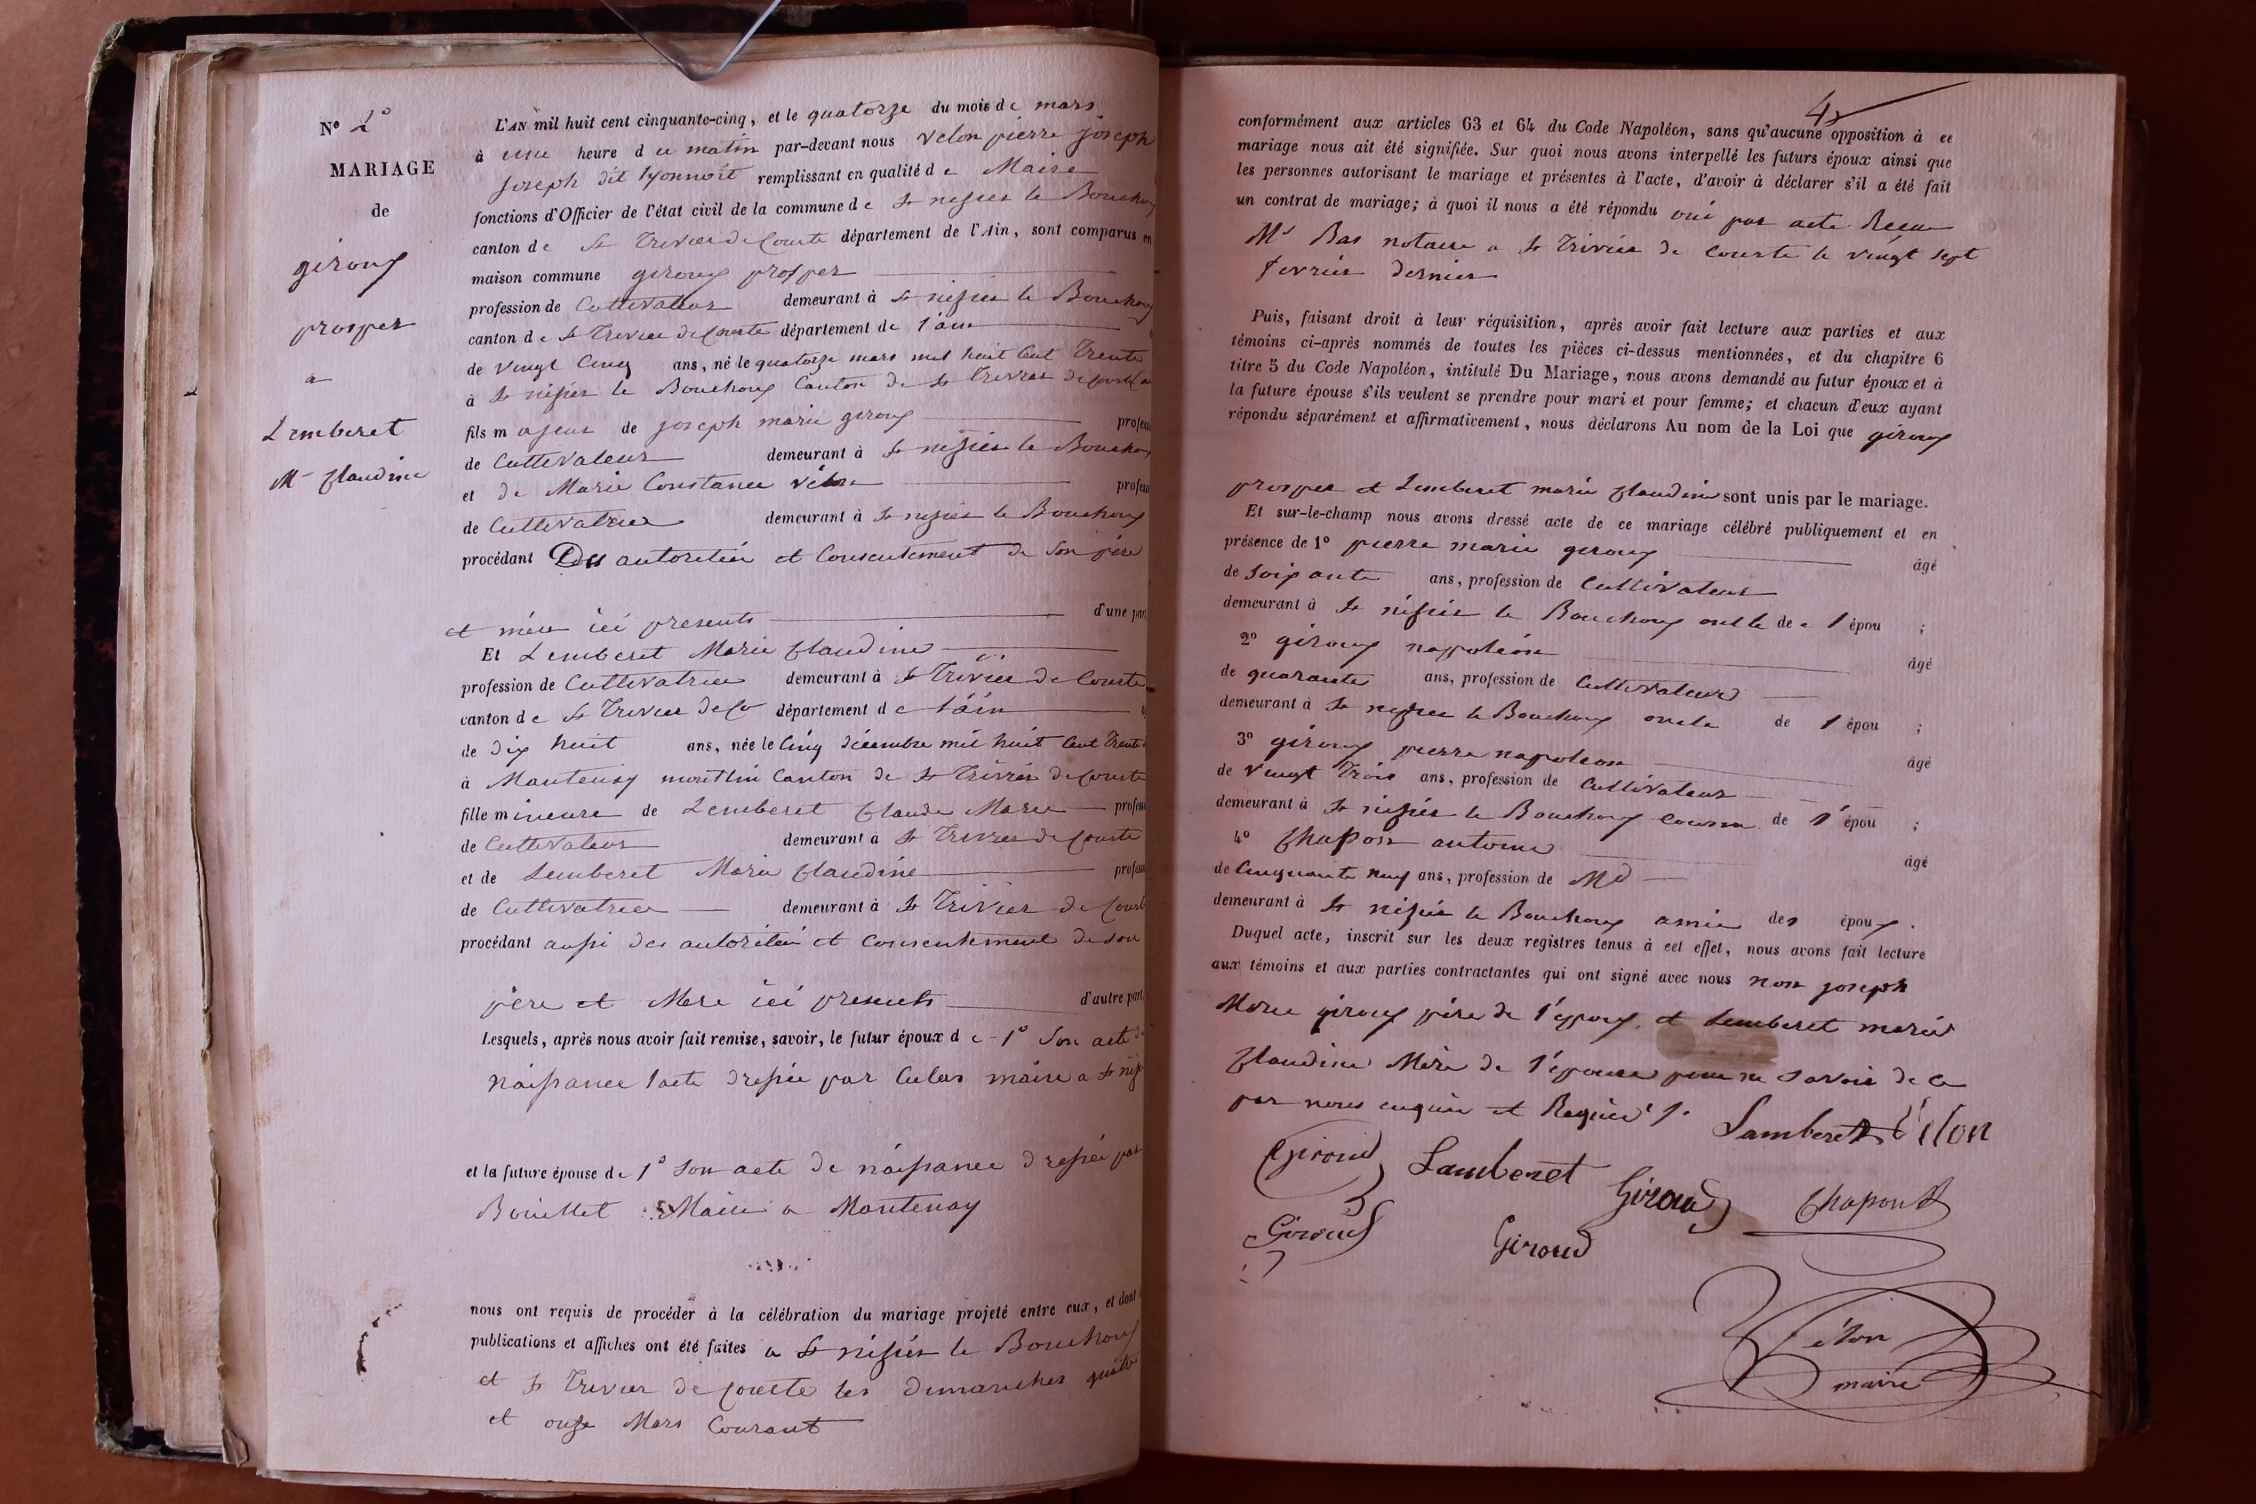 N° 2°
MARIAGE
de
giroux
prosper
a
Lemberet
Mie Claudine
L'AN mil huit cent cinquante-cinq, et le quatorze du mois de mars
à une heure du matin par-devant nous velon pierre joseph
joseph dit lyonnoit remplissant en qualité de Maire
fonctions d'Officier de l'état civil de la commune de St nizier le Bouchoux
canton de St Trivier de Courte département de l'Ain, sont comparus en
maison commune giroux prosper
profession de Cultivateur demeurant à St nizier le Bouchoux
canton de St Trivier de Courte département de l'ain
de vingt Cinq ans, né le quatorze mars mil huit Cent Trente
à St nizier le Bouchoux Canton de St Trivier de Courte
fils majeur de joseph marie giroux profess
de Cultivateur demeurant à St nizier le Bouchoux
et de Marie Constance vélon profess
de Cultivatrice demeurant à St nizier le Bouchoux
procédant Des autoritée et Consentement de Son père
et mère ici presents d'une part
Et Lemberet Marie Claudine
profession de Cultivatrice demeurant à St Trivier de Courte
canton de St Trivier de Co département de l'ain
de dix huit ans, née le Cinq décembre mil huit Cent Trente
à Mantenay montlin Canton de St Trivier de Courte
fille mineure de Lemberet Claude Marie profess
de Cultivateur demeurant à St Trivier de Courte
et de Lemberet Marie Claudine profess
de Cultivatrice demeurant à St Trivier de Courte
procédant aussi des autoritée et Consentement de son
père et Mere ici presents d'autre part
Lesquels, après nous avoir fait remise, savoir, le futur époux de 1° Son acte de
naissance l'acte dressée par maire a St nizi
et la future épouse de 1° Son acte de naissance dressée par
Bouillet Maire a Mantenay
nous ont requis de procéder à la célébration du mariage projeté entre eux, et dont
publications et affiches ont été faites a St nizier le Bouchoux
et St Trivier de Courte les dimanches quatre
et onze Mars Courant
4
conformément aux articles 63 et 64 du Code Napoléon, sans qu'aucune opposition à ce
mariage nous ait été signifiée. Sur quoi nous avons interpellé les futurs époux ainsi que
les personnes autorisant le mariage et présentes à l'acte, d'avoir à déclarer s'il a été fait
un contrat de mariage; à quoi il nous a été répondu oui par acte Recue
Me Bas notaire a St Trivier de Courte le vingt sept
fevrier dernier
Puis, faisant droit à leur réquisition, après avoir fait lecture aux parties et aux
témoins ci-après nommés de toutes les pièces ci-dessus mentionnées, et du chapitre 6
titre 5 du Code Napoléon, intitulé Du Mariage, nous avons demandé au futur époux et à
la future épouse s'ils veulent se prendre pour mari et pour femme; et chacun d'eux ayant
répondu séparément et affirmativement, nous déclarons Au nom de la Loi que giroux
prosper et Lemberet marie Claudine sont unis par le mariage.
Et sur-le-champ nous avons dressé acte de ce mariage célébré publiquement et en
présence de 1° pierre marie giroux âgé
de soixante ans, profession de Cultivateur
demeurant à St nizier le Bouchoux oncle de l'épou ;
2° giroux napoléon âgé
de quarante ans, profession de Cultivateur
demeurant à St nizier le Bouchoux oncle de l'épou ;
3° giroux pierre napoleon âgé
de vingt Trois ans, profession de Cultivateur
demeurant à St nizier le Bouchoux Cousin de l'épou ;
4° Chapon antoine âgé
de Cinquante neuf ans, profession de Md
demeurant à St nizier le Bouchoux amie des époux.
Duquel acte, inscrit sur les deux registres tenus à cet effet, nous avons fait lecture
aux témoins et aux parties contractantes qui ont signé avec nous non joseph
Marie giroux père de l'époux et Lemberet marie
Claudine Mère de l'épouse pour ne savoir de ce
par nous enquis et Requis
Lamberet Vélon
Giroud Lamberet Giroud Chapon
Giroud Giroud
Vélon
maire